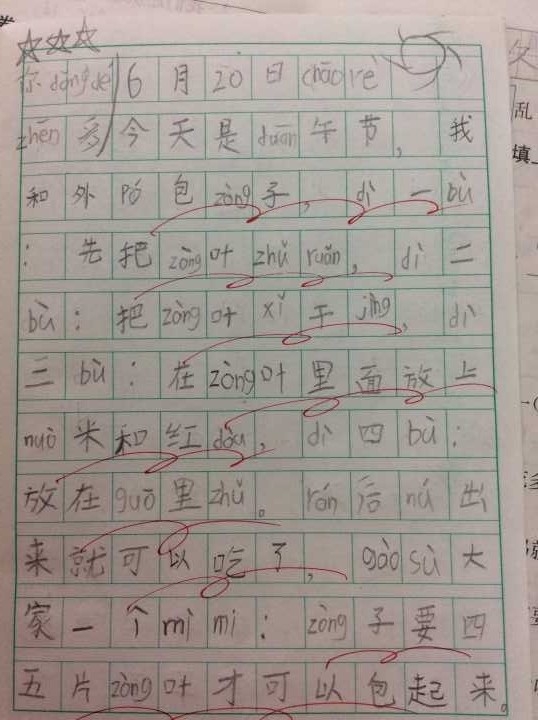 你dǒng de 6月20日 cháo rè
zhēn多 今天是duān午节，我
和外pó包zòng子，dì一bù
：先把zòng叶zhǔ ruǎn，dì二
bù：把zòng叶xǐ干jìng，dì
三bù：在zòng叶里面放上
nuò米和红dòu，dì四bù：
放在guō里zhǔ。rán后ná出
来就可以吃了，gào sù大
家一个mì mì：zòng子要四
五片zòng叶才可以包起来。